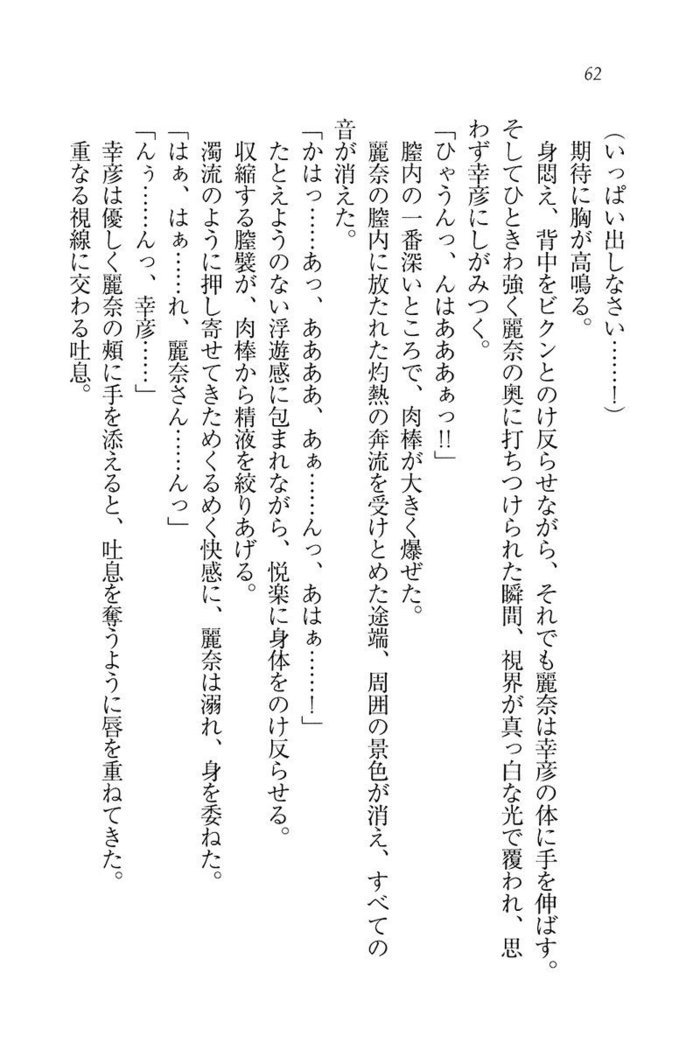 62
（いっぱい出しなさい……！）
期待に胸が高鳴る。
身悶え、背中をビクンとのけ反らせながら、それでも麗奈は幸彦の体に手を伸ばす。
そしてひときわ強く麗奈の奥に打ちつけられた瞬間、視界が真っ白な光で覆われ、思
わず幸彦にしがみつく。
「ひゃうんっ、んはああぁっ!!」
膣内の一番深いところで、肉棒が大きく爆ぜた。
麗奈の膣内に放たれた灼熱の奔流を受けとめた途端、周囲の景色が消え、すべての
音が消えた。
「かはっ……あっ、ああああ、あぁ……んっ、あはぁ……！」
たとえようのない浮遊感に包まれながら、悦楽に身体をのけ反らせる。
収縮する膣襞が、肉棒から精液を絞りあげる。
濁流のように押し寄せてきためくるめく快感に、麗奈は溺れ、身を委ねた。
「はぁ、はぁ……れ、麗奈さん……んっ」
「んぅ……んっ、幸彦……」
幸彦は優しく麗奈の頰に手を添えると、吐息を奪うように唇を重ねてきた。
重なる視線に交わる吐息。